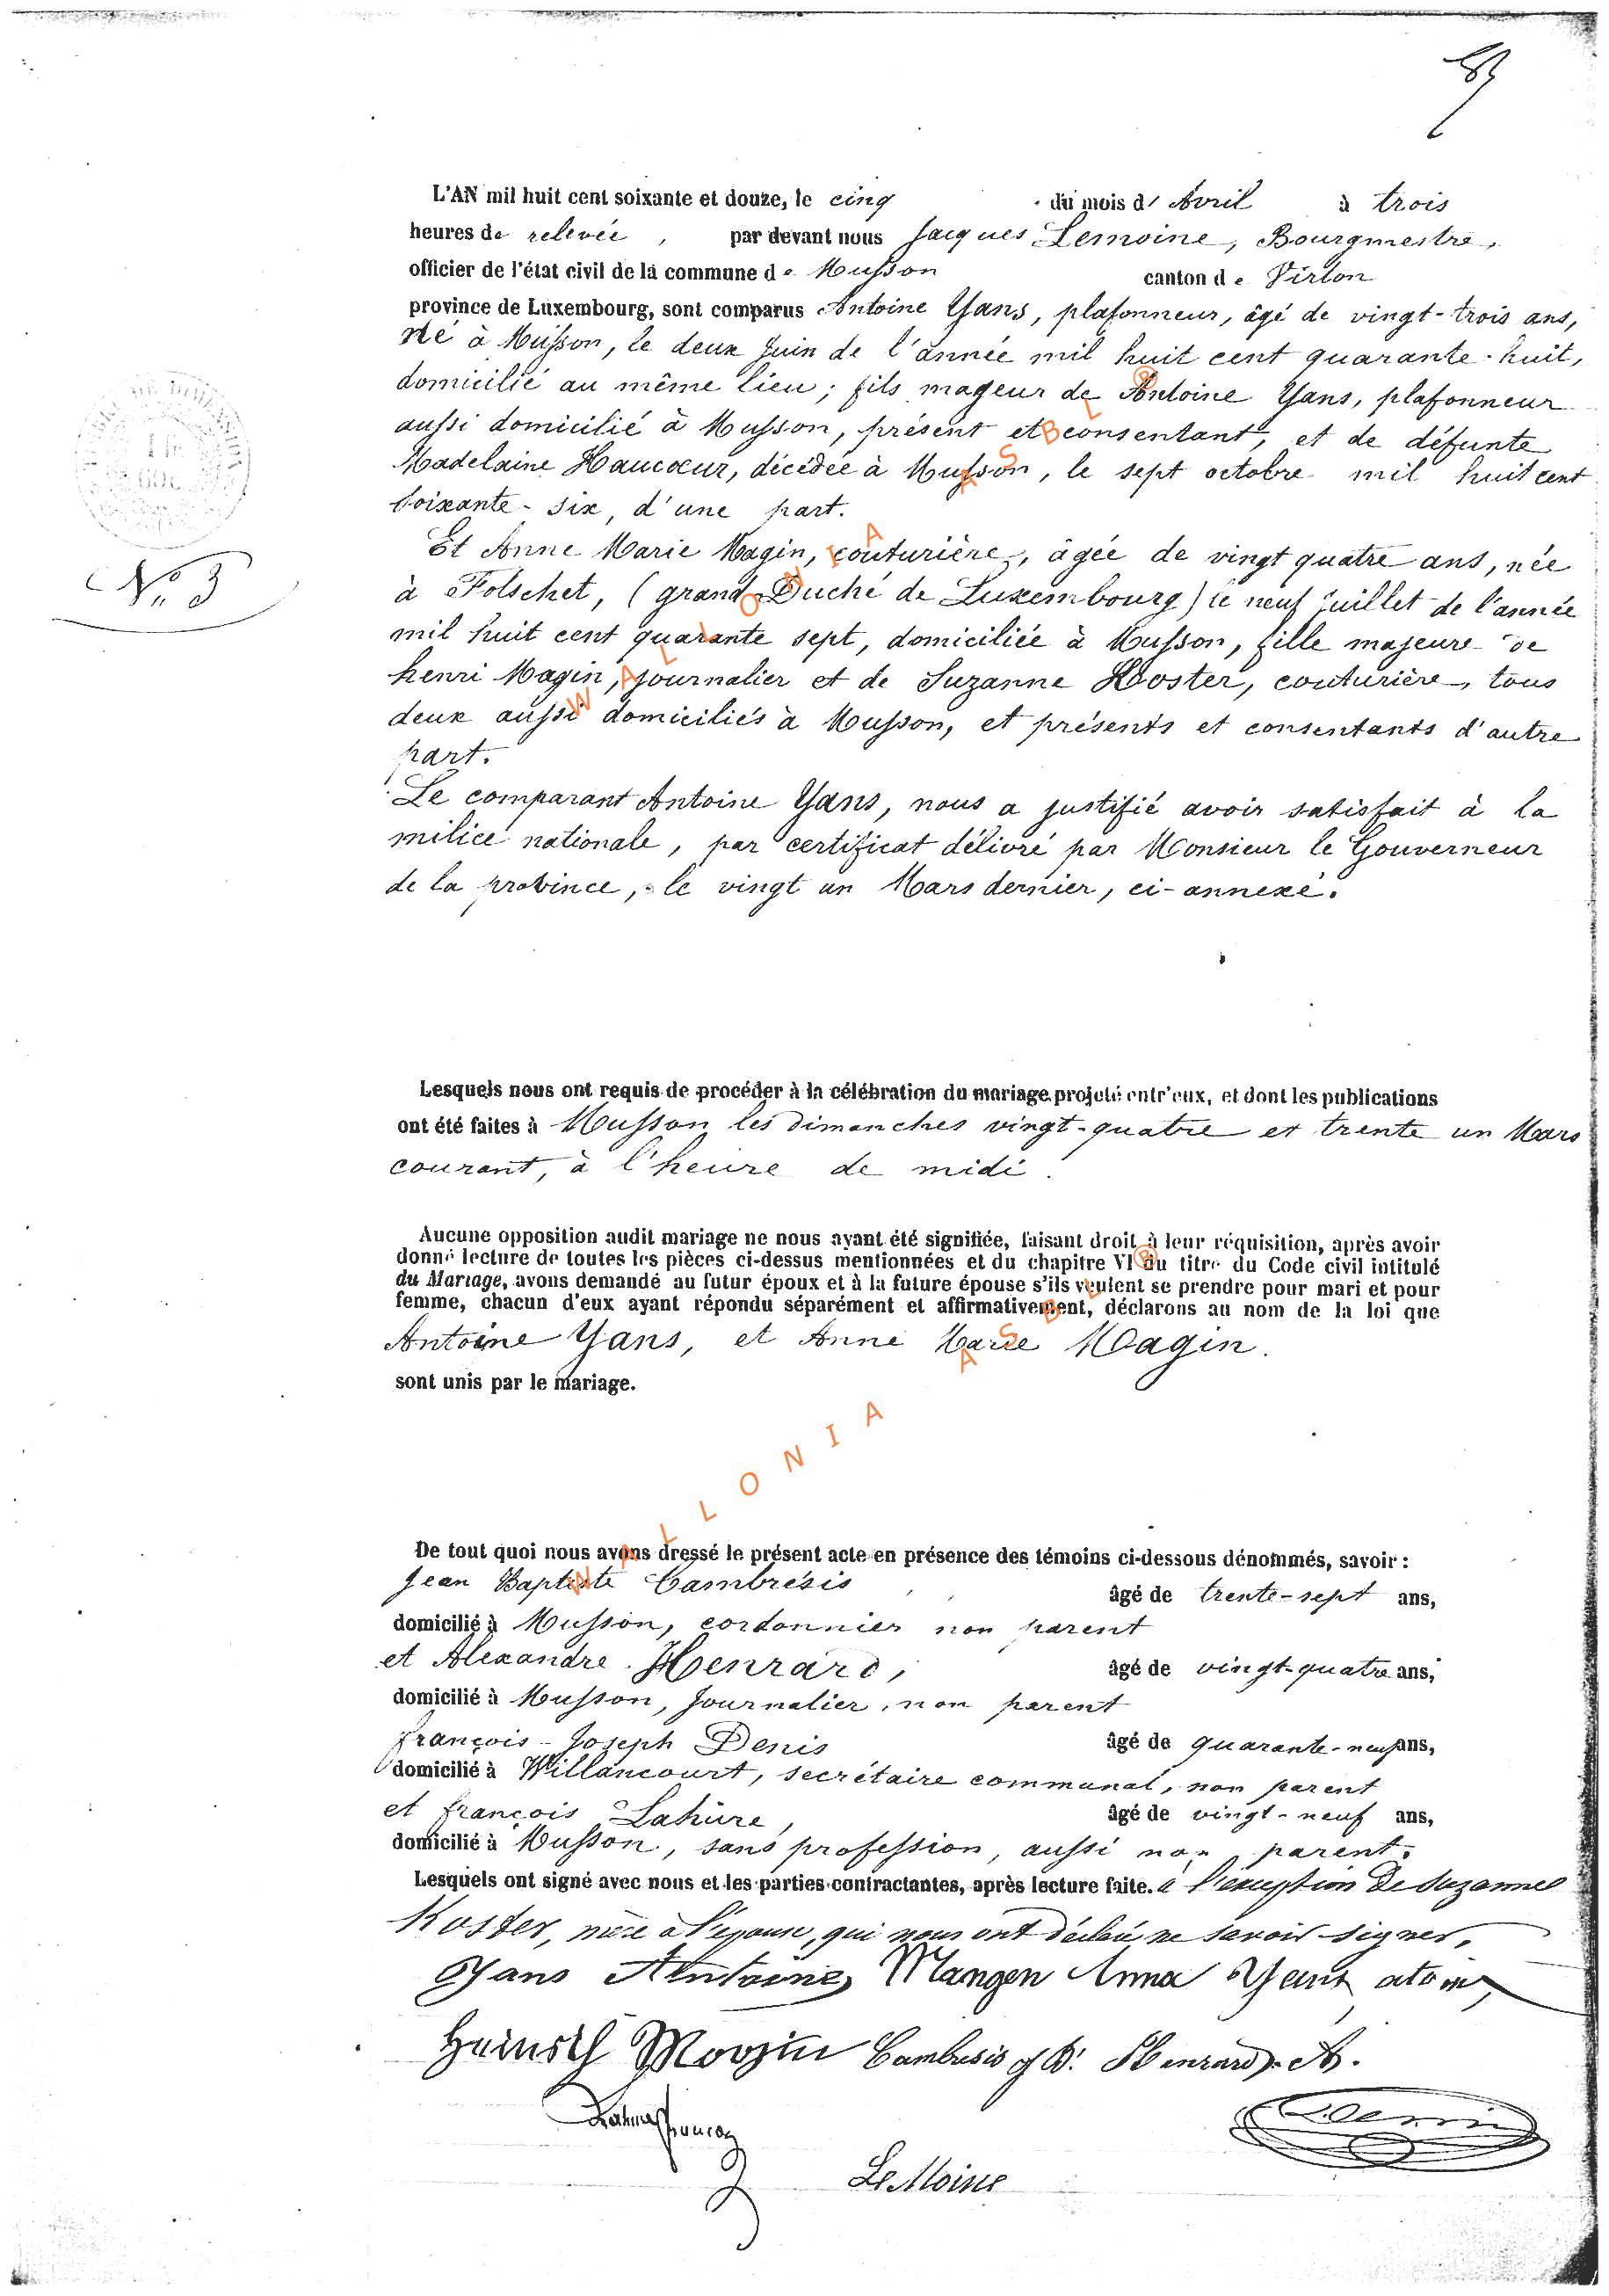 L'AN mil huit cent soixante et douze, le cinq du mois d' Avril à trois
heures de relevée, par devant nous Jacques Lemoine, Bourgmestre,
officier de l'état civil de la commune de Musson canton de Virton
province de Luxembourg, sont comparus Antoine Yans, plafonneur, âgé de vingt-trois ans,
né à Musson, le deux Juin de l'année mil huit cent quarante-huit,
domicilié au même lieu; fils mageur de Antoine Yans, plafonneur
aussi domicilié à Musson, présent et consentant, et de défunte
Madelaine Haucœur, décédée à Musson, le sept octobre mil huit cent
soixante-six, d'une part.
Et Anne Marie Magin, couturière, âgée de vingt quatre ans, née
à Folschet, (grand Duché de Luxembourg) le neuf Juillet de l'année
N° 3
mil huit cent quarante sept, domiciliée à Musson, fille majeure de
henri Magin, journalier et de Suzanne Koster, couturière, tous
deux aussi domiciliés à Musson, et présents et consentants d'autre
part.
Le comparant Antoine Yans, nous a justifié avoir satisfait à la
milice nationale, par certificat délivré par Monsieur le Gouverneur
de la province, le vingt un Mars dernier, ci-annexé.
Lesquels nous ont requis de procéder à la célébration du mariage projeté entr'eux, et dont les publications
ont été faites à Musson les dimanches vingt-quatre et trente un Mars
courant, à l'heure de midi.
Aucune opposition audit mariage ne nous ayant été signifiée, faisant droit à leur réquisition, après avoir
donné lecture de toutes les pièces ci-dessus mentionnées et du chapitre VI du titre du Code civil intitulé
du Mariage, avons demandé au futur époux et à la future épouse s'ils veulent se prendre pour mari et pour
femme, chacun d'eux ayant répondu séparément et affirmativement, déclarons au nom de la loi que
Antoine Yans, et Anne Marie Magin.
sont unis par le mariage.
WALLONIA ASBL ®
De tout quoi nous avons dressé le présent acte en présence des témoins ci-dessous dénommés, savoir :
Jean Baptiste Cambrésis âgé de trente-sept ans,
domicilié à Musson, cordonnier non parent
et Alexandre Henrard, âgé de vingt-quatre ans,
domicilié à Musson, Journalier, non parent
françois-Joseph Denis âgé de quarante-neuf ans,
domicilié à Willancourt, secrétaire communal, non parent
et françois Lahure, âgé de vingt-neuf ans,
domicilié à Musson, sans profession, aussi non parent.
Lesquels ont signé avec nous et les parties contractantes, après lecture faite. à l'exception de Suzanne
Koster, mère à l'épouse, qui nous ont déclaré ne savoir signer.
Yans Antoine Mangen Anna Yans
Heinrich Cambresis J B. Henrard. A.
Lahure françois Denis
LeMoine